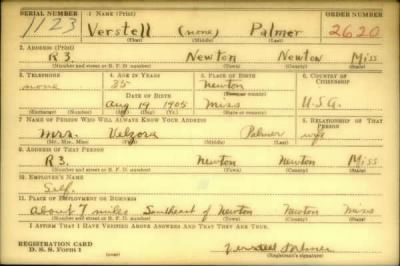 SERIAL NUMBER 1. NAME (Print) ORDER NUMBER
1123 Verstell (none) Palmer 2620
(First) (Middle) (Last)
2. ADDRESS (Print)
R 3 Newton Newton Miss
(Number and street or R. F. D. number) (Town) (County) (State)
3. TELEPHONE 4. AGE IN YEARS 5. PLACE OF BIRTH 6. COUNTRY OF CITIZENSHIP
none 35 Newton
DATE OF BIRTH (Town or county)
Aug 19 1905 Miss U.S.A.
(Exchange) (Number) (Mo.) (Day) (Yr.) (State or country)
7. NAME OF PERSON WHO WILL ALWAYS KNOW YOUR ADDRESS 8. RELATIONSHIP OF THAT PERSON
Mrs. Velzora Palmer wife
(Mr., Mrs., Miss) (First) (Middle) (Last)
9. ADDRESS OF THAT PERSON
R 3. Newton Newton Miss
(Number and street or R. F. D. number) (Town) (County) (State)
10. EMPLOYER'S NAME
Self.
11. PLACE OF EMPLOYMENT OR BUSINESS
About 7 miles Southeast of Newton Newton Miss
(Number and street or R. F. D. number) (Town) (County) (State)
I AFFIRM THAT I HAVE VERIFIED ABOVE ANSWERS AND THAT THEY ARE TRUE.
REGISTRATION CARD
D. S. S. Form 1 Verstell Palmer
(Registrant's signature)